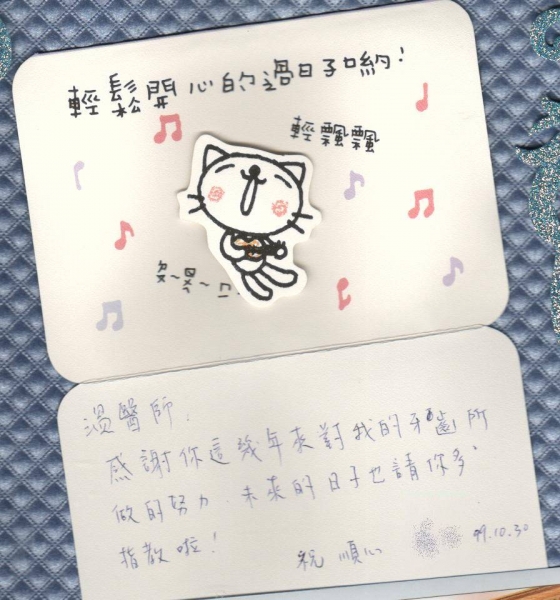 輕鬆開心的過日子喲!
輕飄飄
湯醫師,
感謝你這幾年來對我的牙齒所
做的努力.未來的日子也請你多
指教啦!
祝 順心
99.10.30